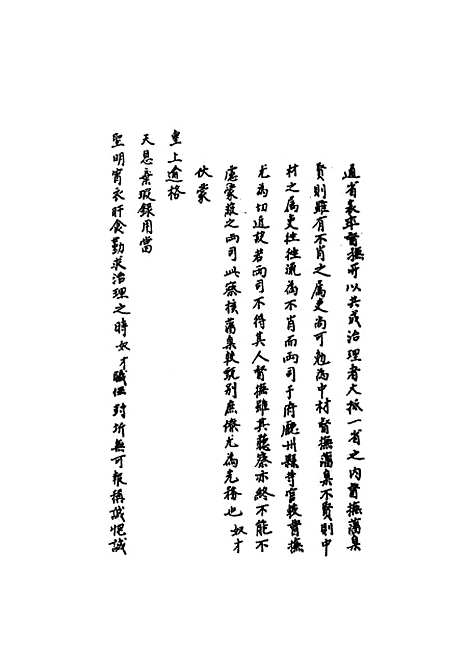 通省表率督撫所以共成治理者大抵一省之內督撫藩臬
賢則雖有不肖之属吏尚可勉為中材督撫藩臬不賢則中
材之属吏徃徃流為不肖而兩司于府廳州縣等官較督撫
尤為切近故若兩司不得其人督撫雖其聽察亦終不能不
慮蒙蔽之兩司此察核藩臬較甄别庶僚尤為先務也奴才
伏蒙
皇上逾格
天恩棄瑕録用當
聖明宵衣旰食勤求治理之時奴才職任封圻無可報稱誠悃誠